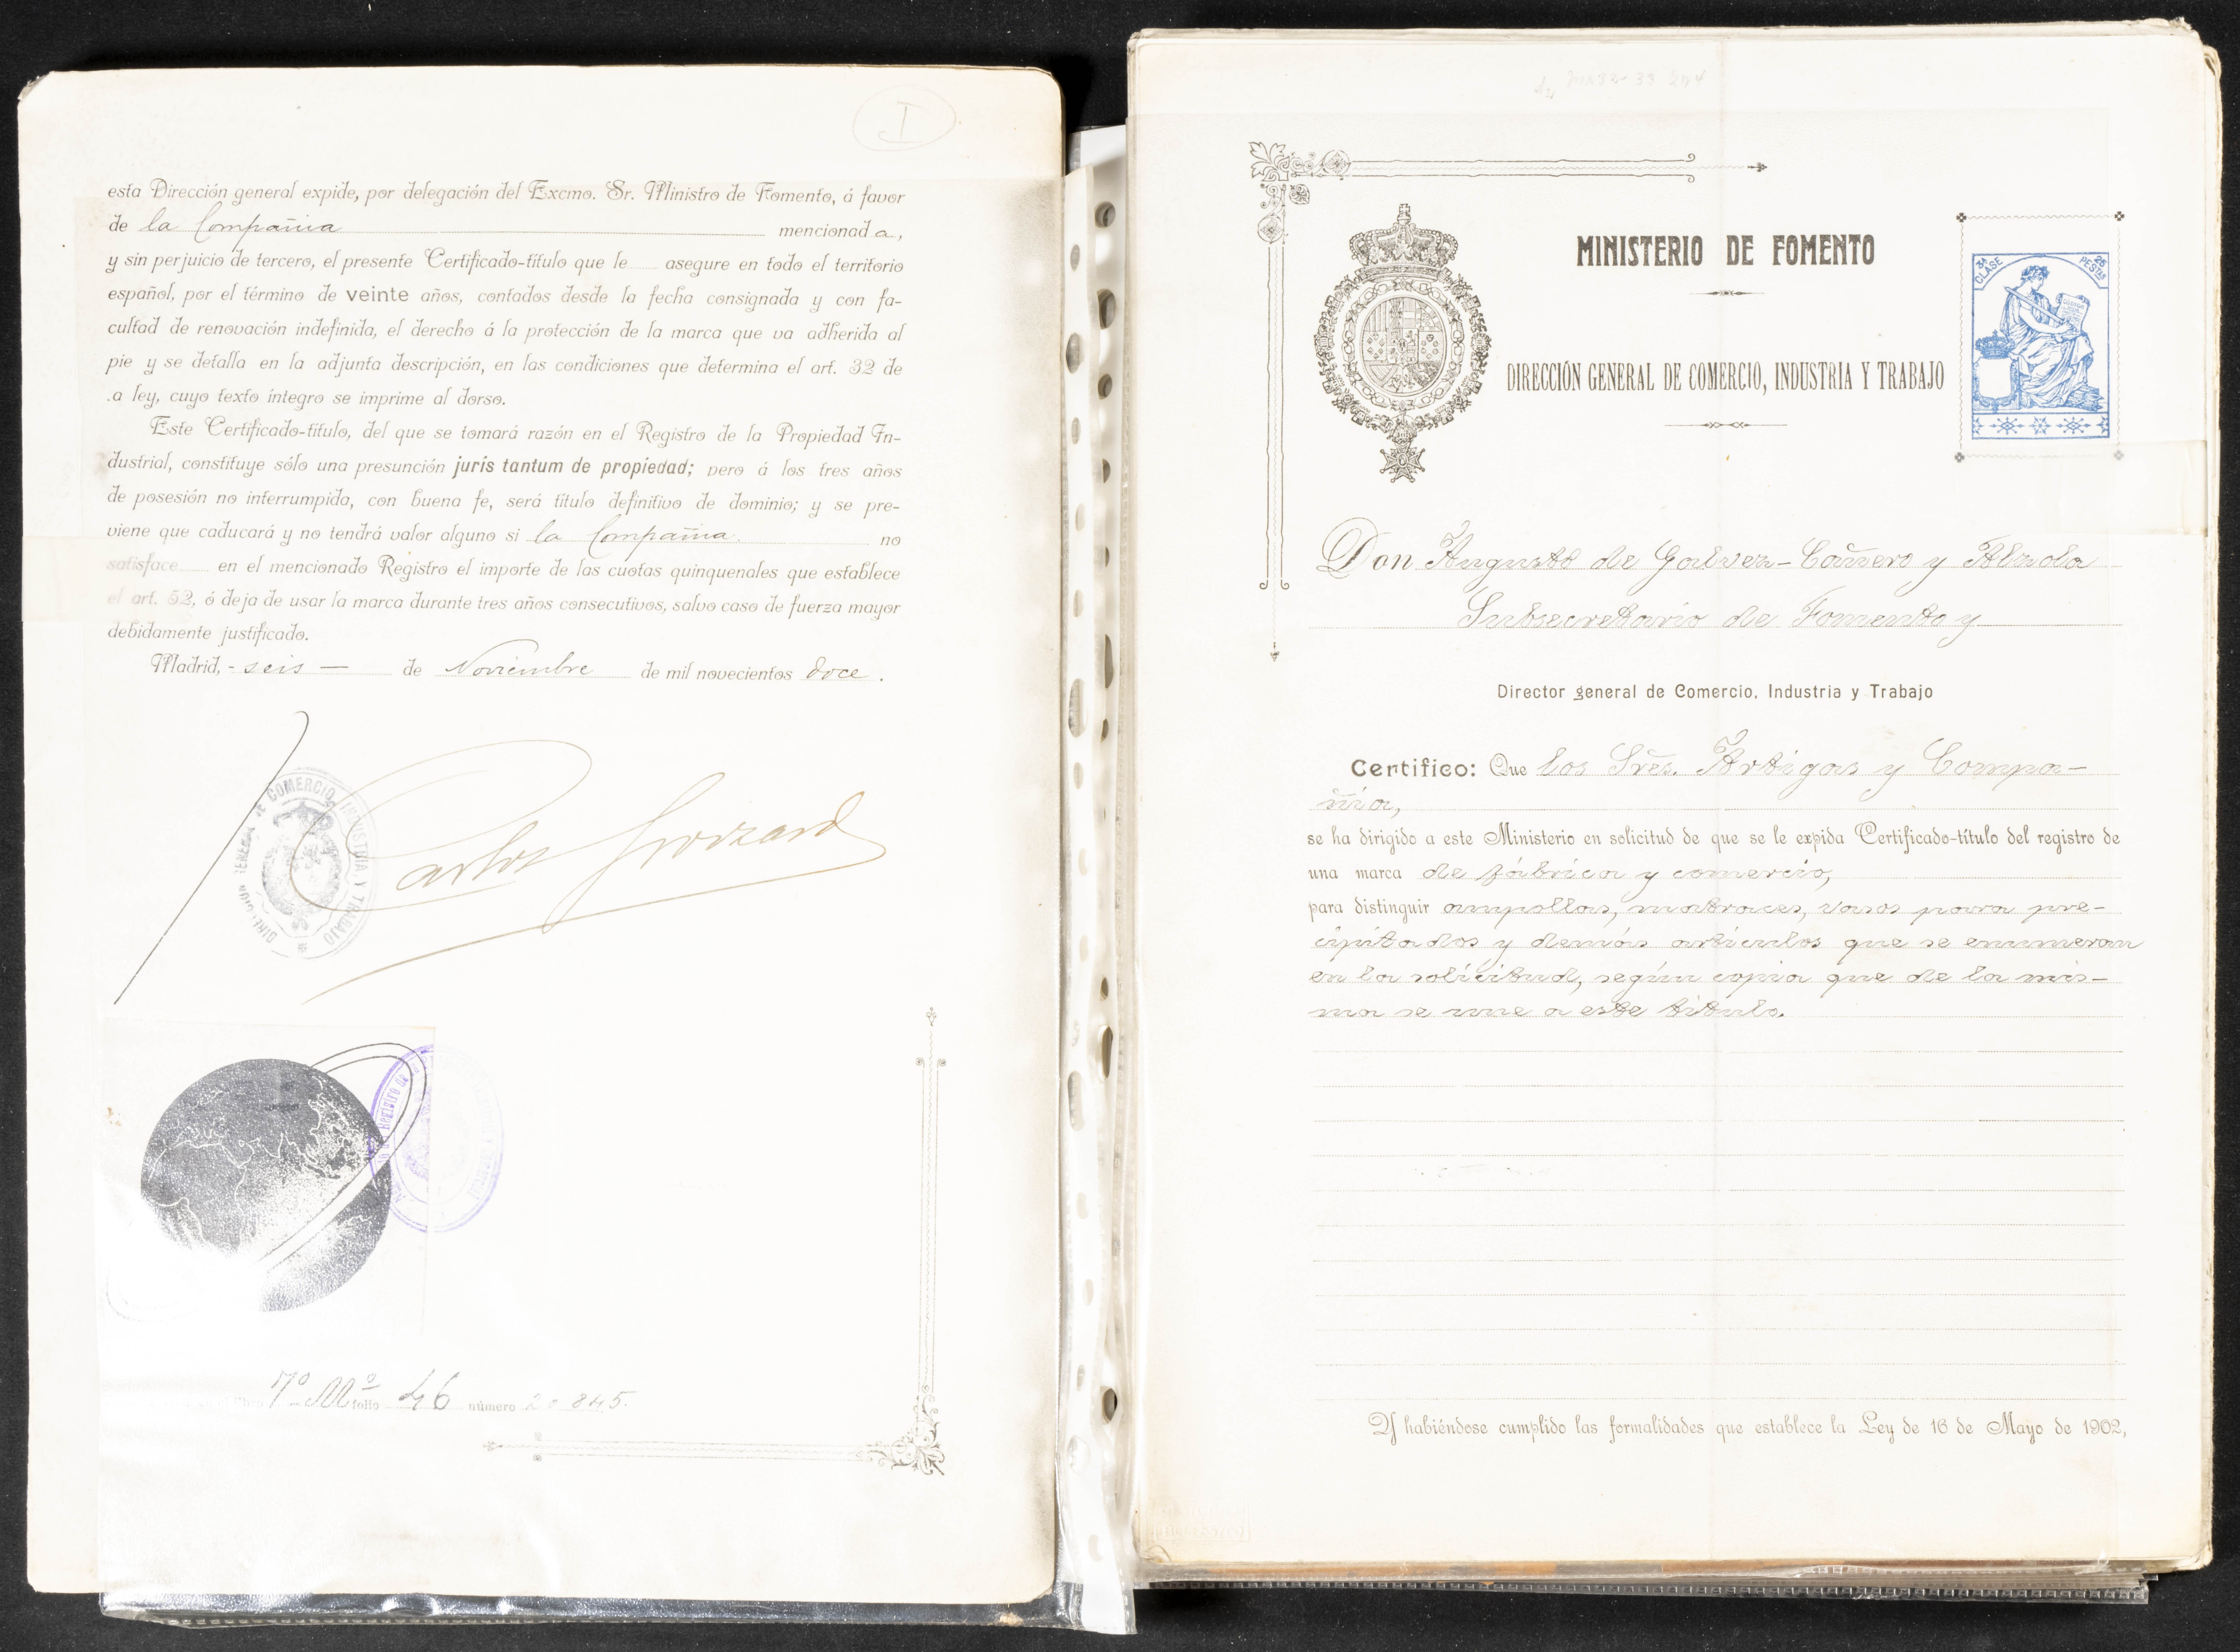 I
esta Dirección general expide, por delegación del Excmo. Sr. Ministro de Fomento, á favor
de la Compañia mencionada,
y sin perjuicio de tercero, el presente Certificado-título que le asegure en todo el territorio
español, por el término de veinte años, contados desde la fecha consignada y con fa-
cultad de renovación indefinida, el derecho á la protección de la marca que va adherida al
pie y se detalla en la adjunta descripción, en las condiciones que determina el art. 32 de
.a ley, cuyo texto íntegro se imprime al dorso.
Este Certificado-título, del que se tomará razón en el Registro de la Propiedad In-
dustrial, constituye sólo una presunción juris tantum de propiedad; pero á los tres años
de posesión no interrumpida, con buena fe, será título definitivo de dominio; y se pre-
viene que caducará y no tendrá valor alguno si la Compañia. no
satisface en el mencionado Registro el importe de las cuotas quinquenales que establece
el art. 52, ó deja de usar la marca durante tres años consecutivos, salvo caso de fuerza mayor
debidamente justificado.
Madrid, - seis - de Noviembre de mil novecientos doce.
DIRECCIÓN GENERAL DE COMERCIO, INDUSTRIA Y TRABAJO
Carlos Groizard
Registro de
7º Mº folio 46 número 20845.
MINISTERIO DE FOMENTO
3ª CLASE 25 PESTAS
DIRECCIÓN GENERAL DE COMERCIO, INDUSTRIA Y TRABAJO
Don Augusto de Galvez-Cañero y Alzola
Subsecretario de Fomento y
Director general de Comercio, Industria y Trabajo
Certifico: Que los Sres. Artigas y Compa-
ñia,
se ha dirigido a este Ministerio en solicitud de que se le expida Certificado-título del registro de
una marca de fábrica y comercio,
para distinguir ampollas, matraces, vasos para pre-
cipitados y demás artículos que se enumeran
en la solicitud, según copia que de la mis-
ma se une a este título.
Y habiéndose cumplido las formalidades que establece la Ley de 16 de Mayo de 1902,